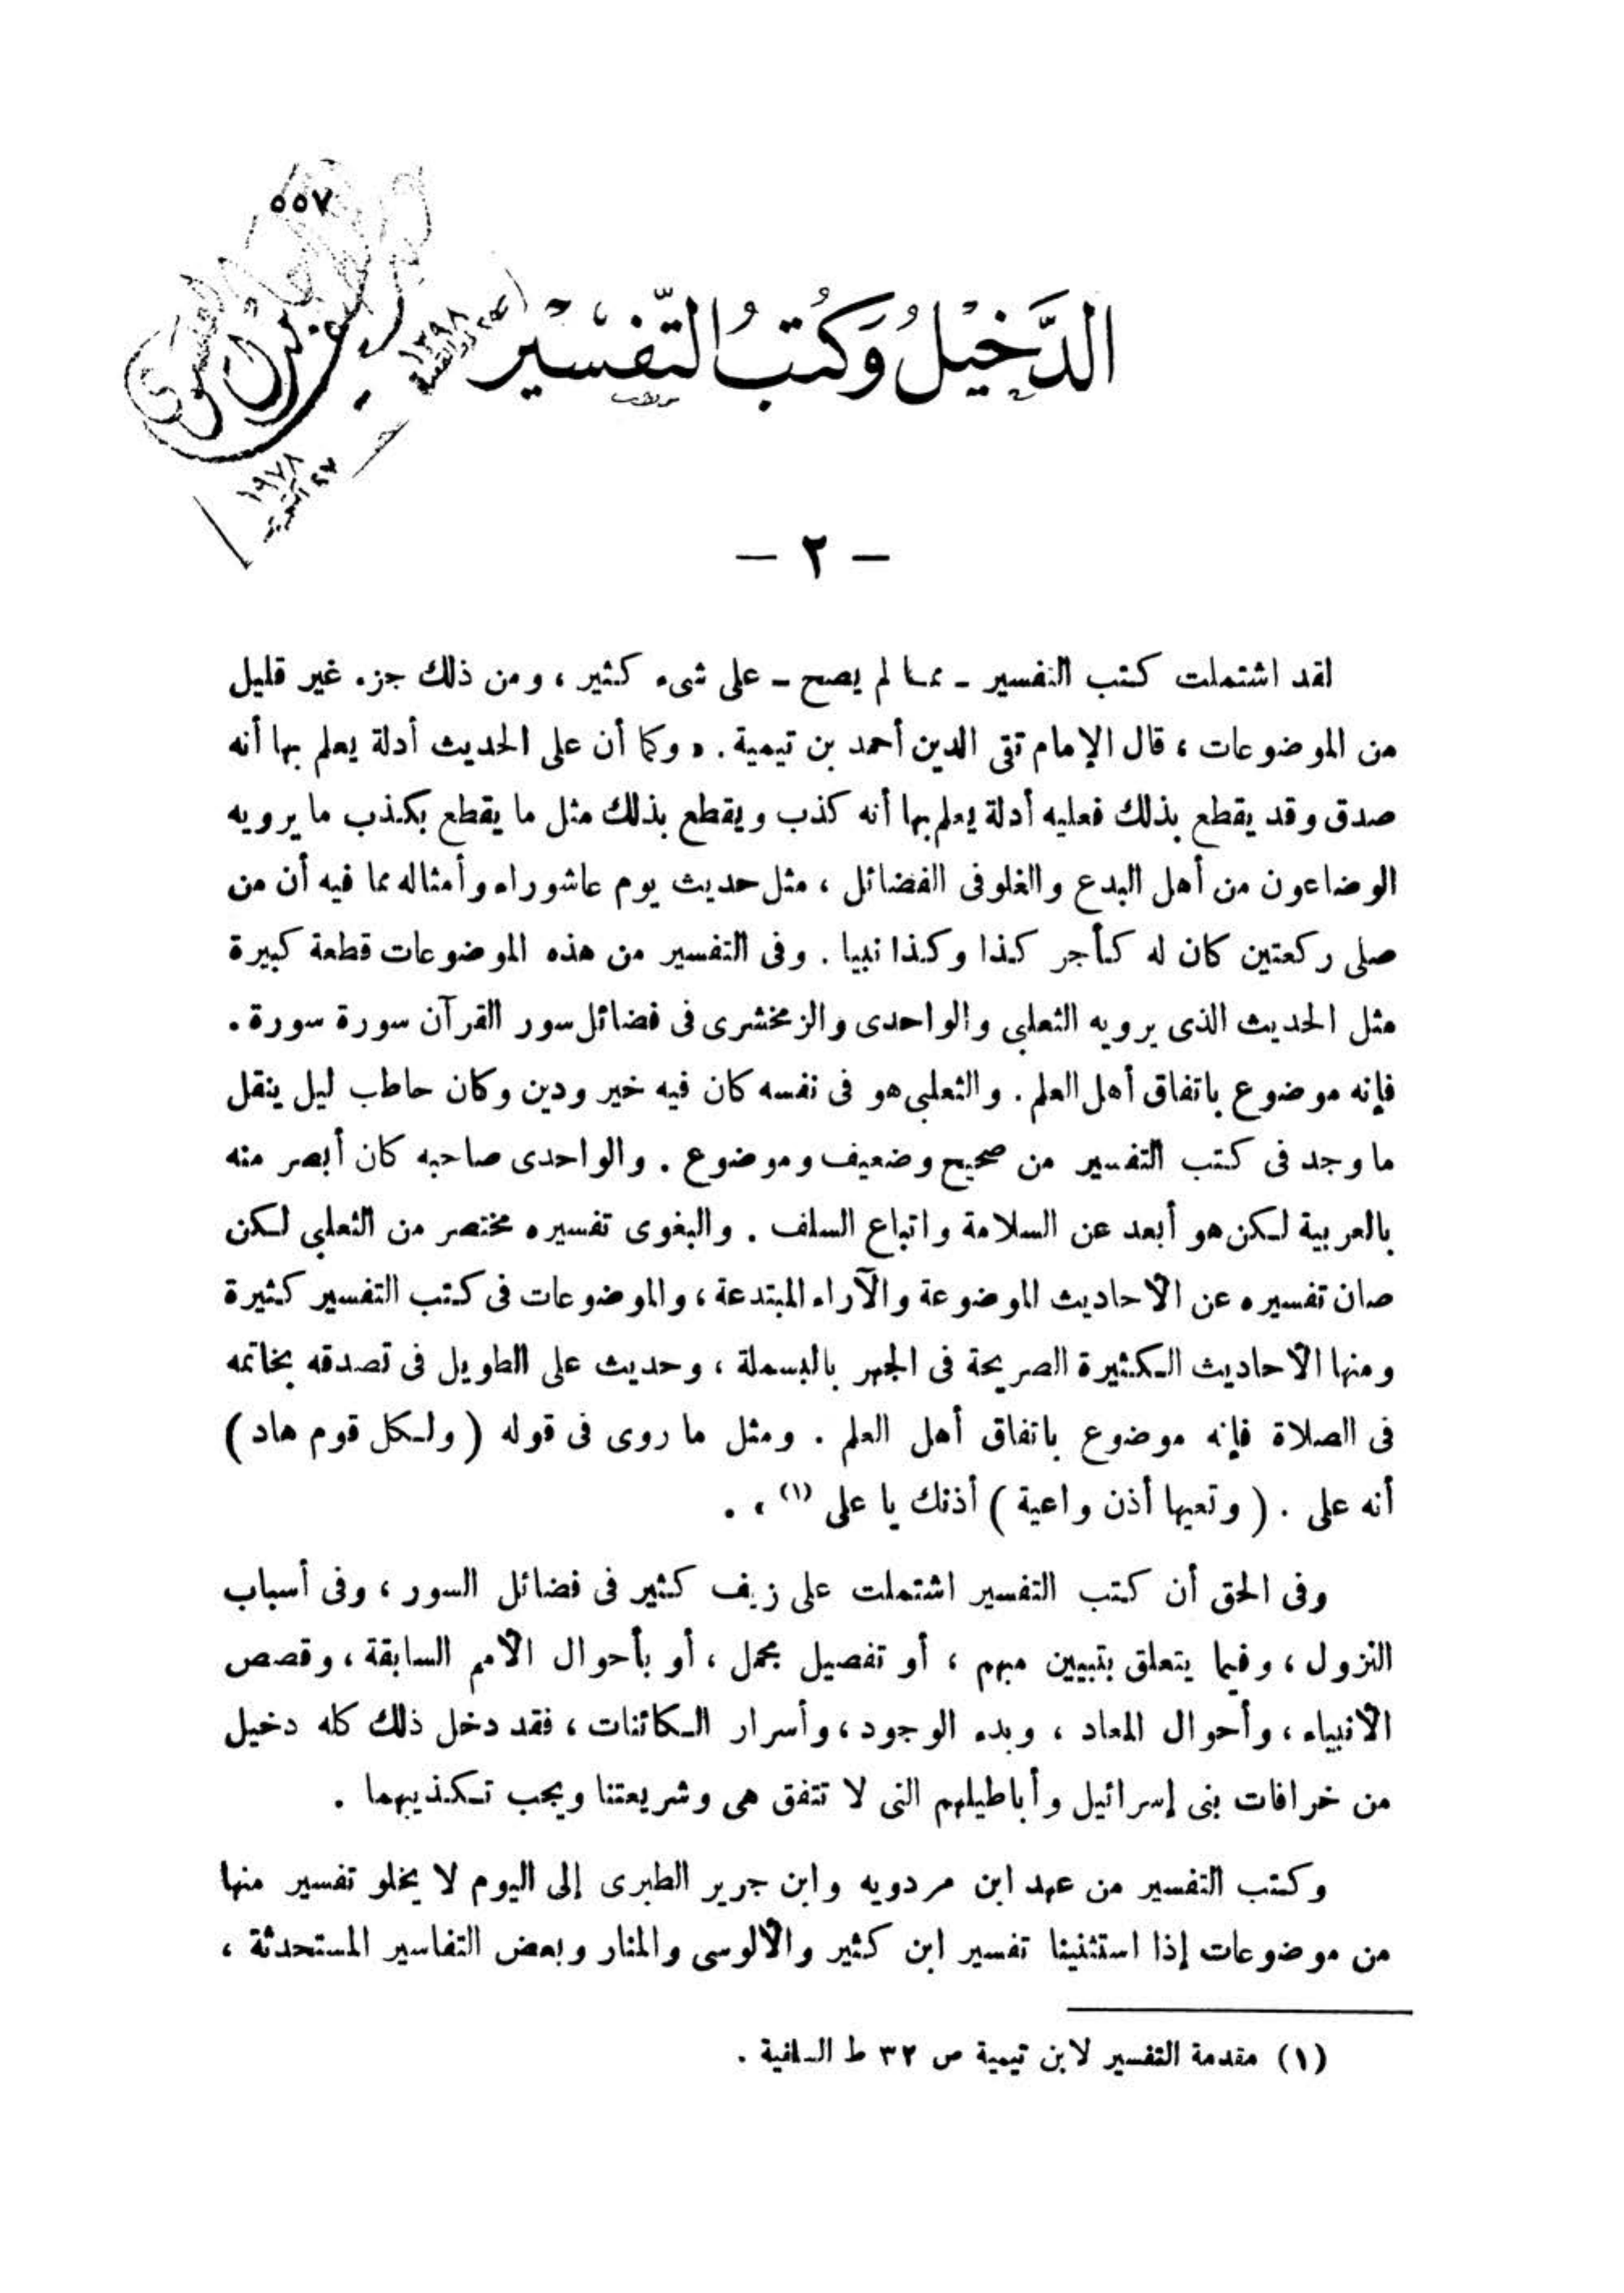 ٥٥٧
الدَّخِيْلُ وَكُتُبُ التَّفسِيْر
١٣٩٨
١٩٧٨
- ٢ -
لقد اشتملت كتب التفسير - مما لم يصح - على شىء كثير ، ومن ذلك جزء غير قليل
من الموضوعات ، قال الإمام تقى الدين أحمد بن تيمية . « وكما أن على الحديث أدلة يعلم بها أنه
صدق وقد يقطع بذلك فعليه أدلة يعلم بها أنه كذب ويقطع بذلك مثل ما يقطع بكذب ما يرويه
الوضاعون من أهل البدع والغلو فى الفضائل ، مثل حديث يوم عاشوراء وأمثاله مما فيه أن من
صلى ركعتين كان له كأجر كذا وكذا نبيا . وفى التفسير من هذه الموضوعات قطعة كبيرة
مثل الحديث الذى يرويه الثعلبي والواحدى والزمخشرى فى فضائل سور القرآن سورة سورة .
فإنه موضوع باتفاق أهل العلم . والثعلبى هو فى نفسه كان فيه خير ودين وكان حاطب ليل ينقل
ما وجد فى كتب التفسير من صحيح وضعيف وموضوع . والواحدى صاحبه كان أبصر منه
بالعربية لكن هو أبعد عن السلامة واتباع السلف . والبغوى تفسيره مختصر من الثعلبي لكن
صان تفسيره عن الأحاديث الموضوعة والآراء المبتدعة ، والموضوعات فى كتب التفسير كثيرة
ومنها الأحاديث الكثيرة الصريحة فى الجهر بالبسملة ، وحديث على الطويل فى تصدقه بخاتمه
فى الصلاة فإنه موضوع باتفاق أهل العلم . ومثل ما روى فى قوله ( ولكل قوم هاد )
أنه على . ( وتعيها أذن واعية ) أذنك يا على (١) » .
وفى الحق أن كتب التفسير اشتملت على زيف كثير فى فضائل السور ، وفى أسباب
النزول ، وفيما يتعلق بتبيين مبهم ، أو تفصيل مجمل ، أو بأحوال الأمم السابقة ، وقصص
الأنبياء ، وأحوال المعاد ، وبدء الوجود ، وأسرار الكائنات ، فقد دخل ذلك كله دخيل
من خرافات بنى إسرائيل وأباطيلهم التى لا تتفق هى وشريعتنا ويجب تكذيبهما .
وكتب التفسير من عهد ابن مردويه وابن جرير الطبرى إلى اليوم لا يخلو تفسير منها
من موضوعات إذا استثنينا تفسير ابن كثير والألوسى والمنار وبعض التفاسير المستحدثة ،
(١) مقدمة التفسير لابن تيمية ص ٣٢ ط السلفية .